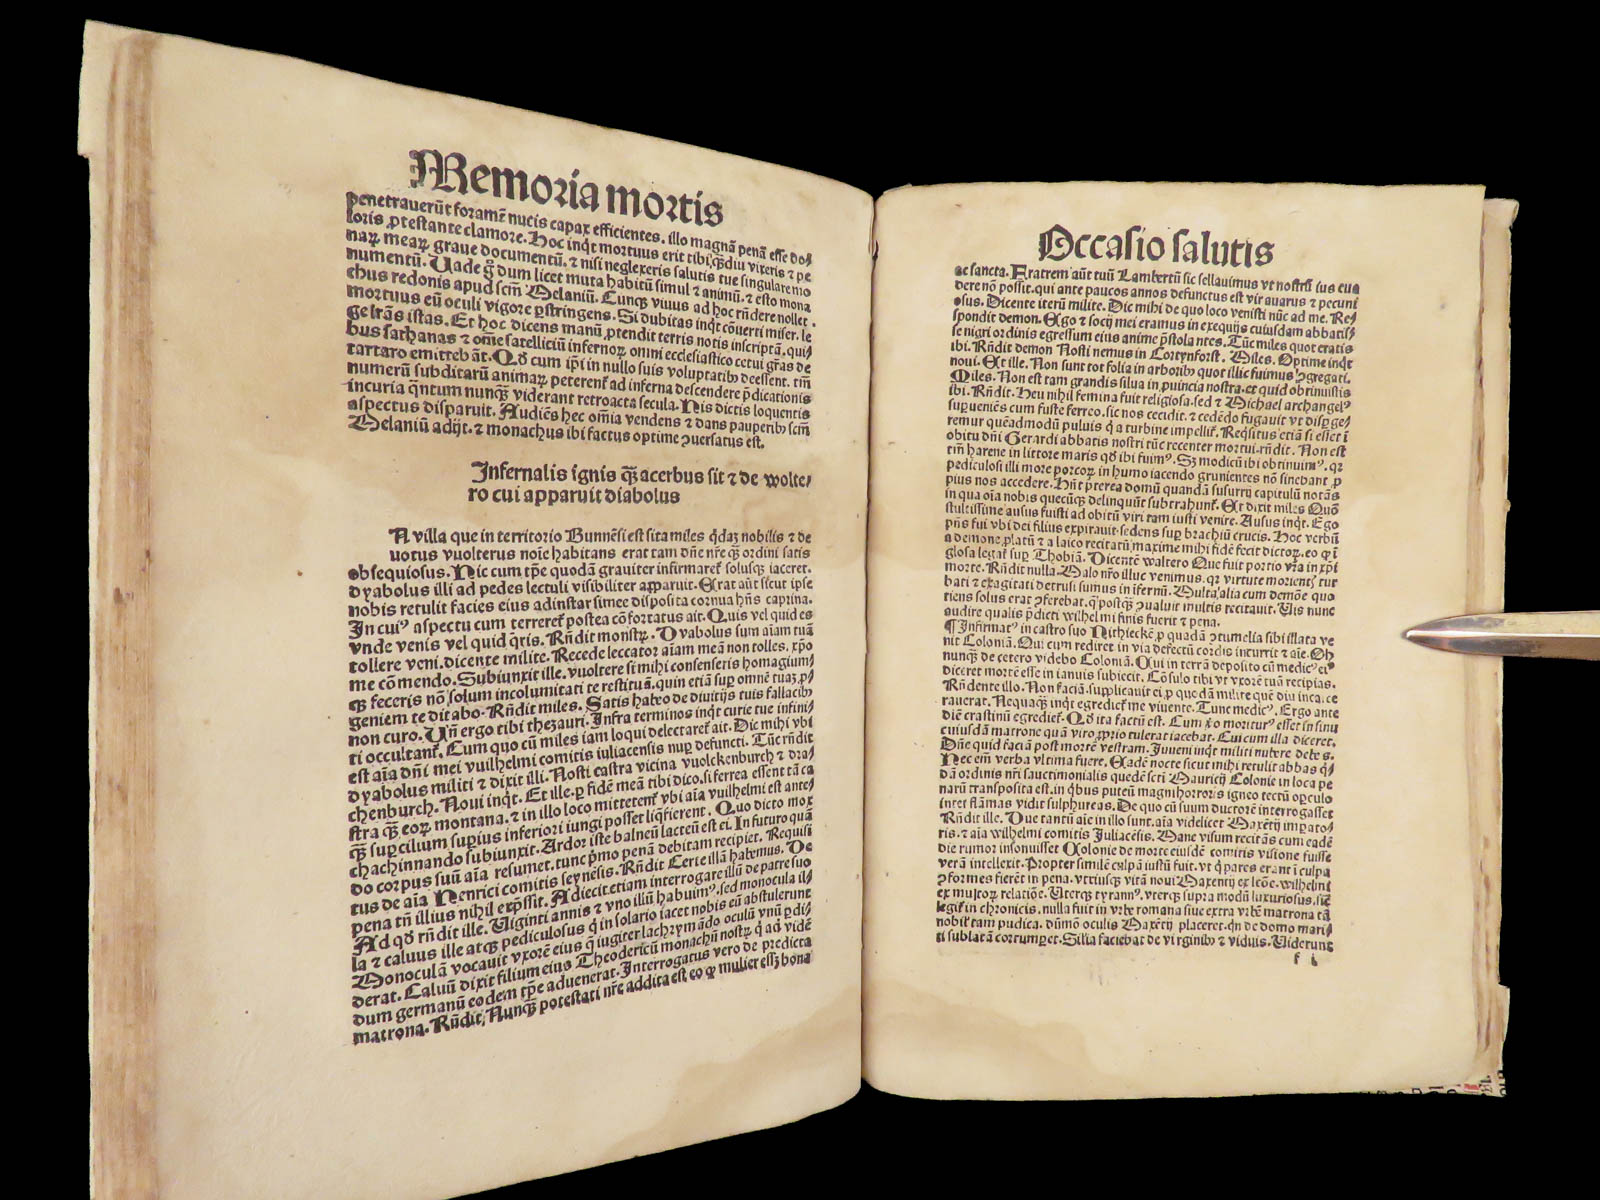 Memoria mortis
penetrauerūt foramē nucis capax efficientes. illo magnā penā esse do⸗
loris ꝓtestante clamore. Hoc inq̄t mortuus erit tibi, q̄diu vixeris ⁊ pe
naꝝ meaꝝ graue documentū. ⁊ nisi neglexeris salutis tue singulare mo
numentū. Uade g̊ dum licet muta habitū simul ⁊ animū. ⁊ esto mona
chus redonis apud scm̄ Melaniū. Cunqꝫ viuus ad hoc rn̄dere nollet.
mortuus eū oculi vigore ꝑstringens. Si dubitas inq̄t cōuerti miser. le
ge lr̄as istas. Et hoc dicens manū ꝓtendit tetris notis inscriptā. qui⸗
bus sathanas ⁊ om̄e satelliciū infernoꝝ omni ecclesiastico cetui gr̄as de
tartaro emittebāt. Qd̄ cum ip̄i in nullo suis voluptatibꝰ deessent. tm̄
numerū subditarū animaꝝ peterent̄ ad inferna descendere p̄dicationis
incuria q̄ntum nunqꝫ viderant retroacta secula. His dictis loquentis
aspectus disparuit. Audiēs hec om̄ia vendens ⁊ dans pauperibꝰ scm̄
Melaniū adijt. ⁊ monachus ibi factus optime ꝯuersatus est.
Infernalis ignis qꝫ acerbus sit ⁊ de wolte⸗
ro cui apparuit diabolus
A villa que in territorio Bunnēsi est sita miles q̄daꝫ nobilis ⁊ de
uotus vuolterus noīe habitans erat tam dn̄e nr̄e qꝫ ordini satis
obsequiosus. Hic cum tp̄e quodā grauiter infirmaret̄ solusqꝫ iaceret.
dyabolus illi ad pedes lectuli visibiliter apparuit. Erat aūt sicut ipse
nobis retulit facies eius ad instar simee disposita cornua hn̄s caprina.
In cuiꝰ aspectu cum terreret̄ postea cōfortatus ait. Quis vel quid es
vnde venis vel quid q̄ris. Rn̄dit monstꝝ. Dyabolus sum aīam tuā
tollere veni. dicente milite. Recede leccator aīam meā non tolles. xp̄o
me cōmendo. Subiunxit ille. vuoltere si mihi consenseris homagium⸗
qꝫ feceris nō solum incolumitati te restituā. quin etiā suꝑ omnē tuaꝫ ꝓ⸗
geniem te ditabo. Rn̄dit miles. Satis habeo de diuitijs tuis fallacibꝰ
non curo. Un̄ ergo tibi thezauri. Infra terminos inq̄t curie tue infini⸗
ti occultant̄. Cum quo cū miles iam loqui delectaret̄ ait. Dic mihi vbi
est aīa dn̄i mei vuilhelmi comitis iuliacensis nuꝑ defuncti. Tūc rn̄dit
dyabolus militi ⁊ dixit illi. Nosti castra vicina vuolckenburch ⁊ dra⸗
chenburch. Noui inq̄t. Et ille. ꝑ fidē meā tibi dico. si ferrea essent tā ca
stra qꝫ eoꝝ montana. ⁊ in illo loco mitterent̄ vbi aīa vuilhelmi est ante⸗
qꝫ supercilium suꝑius inferiori iungi posset liq̄fierent. Quo dicto mox
chachinnando subiunxit. Ardor iste balneū lacteū est ei. In futuro quā
do corpus suū aīa resumet. tunc pͥmo penā debitam recipiet. Requisi
tus de aīa Henrici comitis seynēsis. Rn̄dit Certe illā habemus. De
pena tn̄ illius nihil exp̄ssit. Adiecit etiam interrogare illū de patre suo
Ad qd̄ rn̄dit ille. Uiginti annis ⁊ vno illū habuimꝰ. sed monocula il⸗
la ⁊ caluus ille atqꝫ pediculosus q̄ in solario iacet nobis eū abstulerunt
Monoculā vocauit vxorē eius q̄ iugiter lachrymādo oculū vnū ꝑdi⸗
derat. Caluū dixit filium eius Theodericū monachū nostꝝ q̄ ad vidē
dum germanū eodem tp̄e aduenerat. Interrogatus vero de predicta
matrona. Rn̄dit. Nunqꝫ potestati nr̄e addita est. eo qꝫ mulier essꝫ bona
Occasio salutis
ac sancta. Fratrem aūt tuū Lambertū sic sellauimus vt nostrā ius eua
dere nō possit. qui ante paucos annos defunctus est vir auarus ⁊ pecuni
osus. Dicente iterū milite. Dic mihi de quo loco venisti nūc ad me. Re⸗
spondit demon. Ego ⁊ socij mei eramus in exequijs cuiusdam abbatis⸗
se nigri ordinis egressum eius anime p̄stolantes. Tūc miles quot eratis
ibi. Rn̄dit demon Nosti nemus in Cortynforst. Miles. Optime inq̄t
noui. Et ille. Non sunt tot folia in arboribꝰ quot illic fuimus ꝯgregati.
Miles. Non est tam grandis silua in ꝓuincia nostra. et quid obtinuistis
ibi. Rn̄dit. Heu nihil femina fuit religiosa. sed ⁊ Michael archangelꝰ
suꝑueniēs cum fuste ferreo. sic nos cecidit. ⁊ cedēdo fugauit vt disꝑge⸗
remur quēadmodū puluis q̄ a turbine impellit̄. Reqͥsitus etiā si esset ī
obitu dn̄i Gerardi abbatis nostri tūc recenter mortui. rn̄dit. Non est
tm̄ harene in littore maris qd̄ ibi fuimꝰ. Sꝫ modicū ibi obtinuimꝰ. qꝛ
pediculosi illi more porcoꝝ in humo iacendo grunientes nō sinebant ꝓ
pius nos accedere. Hn̄t p̄terea domū quandā susurrij capitulū notās
in qua oīa nobis quecūqꝫ delinquūt subtrahunt̄. Et dixit miles Quō
stultissime ausus fuisti ad obitū viri tam iusti venire. Ausus inq̄t. Ego
pn̄s fui vbi dei filius expirauit. sedens suꝑ brachiū crucis. Hoc verbū
a demone ꝓlatū ⁊ a laico recitatū. maxime mihi fidē fecit dictoꝝ. eo qꝫ ī
glosa legat̄ suꝑ Thobiā. Dicente waltero Que fuit portio vr̄a in xp̄i
morte. Rn̄dit nulla. Malo nr̄o illuc venimus. qꝛ virtute morientꝭ tur
bati ⁊ exagitati detrusi sumus in ifernū. Multa alia cum demōe quo
tiens solus erat ꝯferebat. q̄ postqꝫ ꝯualuit multis recitauit. Uis nunc
audire qualis p̄dicti wilhelmi finis fuerit ⁊ pena.
¶ Infirmatꝰ in castro suo Nithieckē ꝓ quadā ꝯtumelia sibi illata ve
nit Coloniā. Qui cum rediret in via defectū cordis incurrit ⁊ aīe. Oh
nunqꝫ de cetero videbo Coloniā. Qui in terrā deposito cū medicꝰ eiꝰ
diceret mortē esse in ianuis subiecit. Cōsulo tibi vt vxorē tuā recipias.
Rn̄dente illo. Non faciā. supplicauit ei ꝓ quodā milite quē diu incarce
rauerat. Nequaqꝫ inq̄t egrediet̄ me viuente. Tunc medicꝰ. Ergo ante
diē crastinū egrediet̄. Qd̄ ita factū est. Cum ꝟo moriturꝰ esset in sinu
cuiusdā matrone quā viro ꝓprio tulerat iacebat. Cui cum illa diceret.
Dn̄e quid faciā post mortē vestram. Iuueni inq̄t militi nubere debes.
Hec em̄ verba vltima fuere. Eadē nocte sicut mihi retulit abbas q̄⸗
dā ordinis nr̄i sanctimonialis quedā scti Mauricij Colonie in loca pe
narū transposita est. in q̄bus puteū magni horroris igneo tectū oꝑculo
inter flāmas vidit sulphureas. De quo cū suum ductorē interrogasset
Rn̄dit ille. Due tantū aīe in illo sunt. aīa videlicet Maxētij imꝑato⸗
ris. ⁊ aīa wilhelmi comitis Juliacēsis. Mane visum recitās cum eadē
die rumor insonuisset Colonie de morte eiusdē comitis visione fuisse
verā intellexit. Propter similē culpā iustū fuit. vt q̄ pares erant ī culpa
ꝯformes fierēt in pena. vtriusqꝫ vitā noui Maxentij ex lc̄ōe. wilhelmi
ex multoꝝ relatiōe. Uterqꝫ tyrannꝰ. vterqꝫ supra modū luxuriosus. sic̄
legit̄ in chronicis. nulla fuit in vrbe romana siue extra vrbē matrona tā
nobilꝭ tam pudica. dūmō oculis Maxētij placeret. qn̄ de domo mari⸗
ti sublatā corrumꝑet. Silia faciebat de virginibꝰ ⁊ viduis. Uiderunt
f i